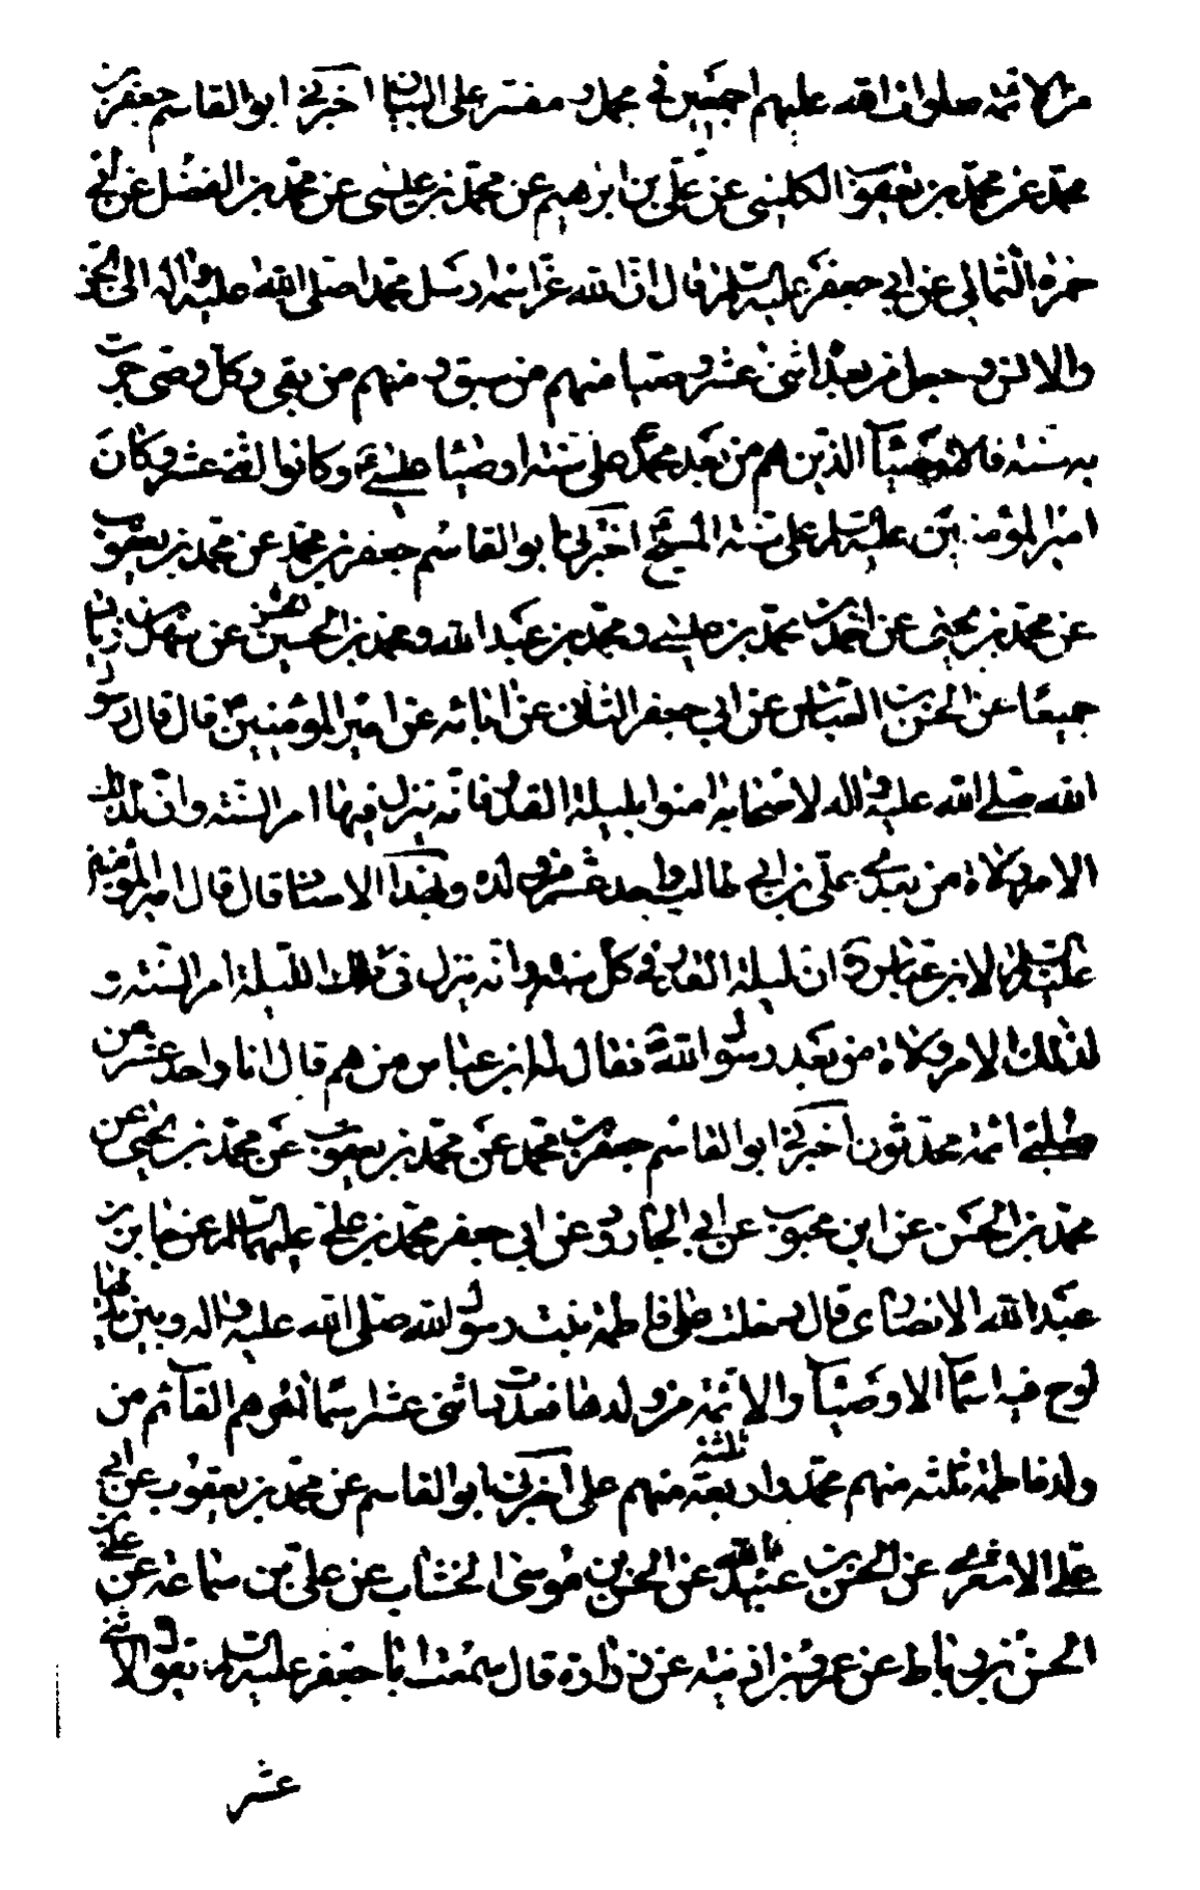 من الائمة صلوات الله عليهم اجمعين في مجمل ومفسر على البيان اخبرني ابو القاسم جعفر بن
محمد عن محمد بن يعقوب الكليني عن علي بن ابرهيم عن محمد بن عيسى عن محمد بن الفضل عن ابي
حمزة الثمالي عن ابي جعفر عليه السلم قال ان الله عز اسمه ارسل محمدا صلى الله عليه واله الى الجن
والانس وجعل من بعده اثنى عشر وصيا منهم من سبق ومنهم من بقي وكل وصى جرت
به سنة فالاوصيآ الذين هم من بعد محمد على سنة اوصيا عيسى ع وكانوا اثنى عشر وكان
امير المؤمنين عليه السلم على سنة المسيح ع اخبرني ابو القاسم جعفر بن محمد عن محمد بن يعقوب
عن محمد بن يحيى عن احمد بن محمد بن عيسى ومحمد بن عبد الله ومحمد بن الحسين عن سهل بن زياد
جميعا عن الحسن بن العباس عن ابي جعفر الثاني عن ابائه عن امير المؤمنين قال قال رسول
الله صلى الله عليه واله لاصحابه امنوا بليلة القدر فانه ينزل فيها امر السنة وان لذلك
الامر ولاة من بعدي علي بن ابي طالب واحد عشر من ولده وبهذا الاسناد قال قال امير المؤمنين
عليه السلم لابن عباس ان ليلة القدر في كل سنة وانه ينزل في تلك الليلة امر السنة و
لذلك الامر ولاة من بعد رسول الله فقال له ابن عباس من هم قال انا واحد عشر من
صلبي ائمة محدثون اخبرني ابو القاسم جعفر بن محمد عن محمد بن يعقوب عن محمد بن يحيى عن
محمد بن الحسن عن ابن محبوب عن ابي الجارود عن ابي جعفر محمد بن علي عليهما السلم عن جابر بن
عبد الله الانصارى قال دخلت على فاطمة بنت رسول الله صلى الله عليه واله وبين يديها
لوح فيه اسمآ الاوصيآ والائمة من ولدها فعددت اثنى عشر اسما اخرهم القآئم من
ولد فاطمة ثلثة منهم محمد واربعة ثلثة منهم علي اخبرني ابو القاسم عن محمد بن يعقوب عن ابي
علي الاشعري عن الحسن بن عبيد الله عن الحسن بن موسى الخشاب عن علي بن سماعة عن علي بن
الحسن بن رباط عن عمر بن اذينه عن زرارة قال سمعت ابا جعفر عليه السلم يقول الاثنى
عشر